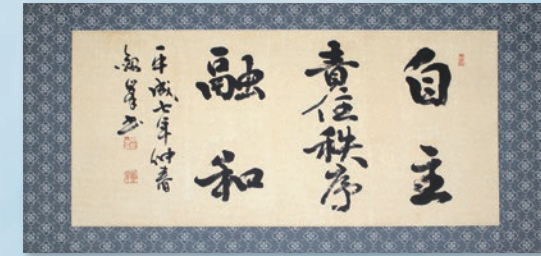 自主
責任秩序
融和
平成七年仲春
峯書